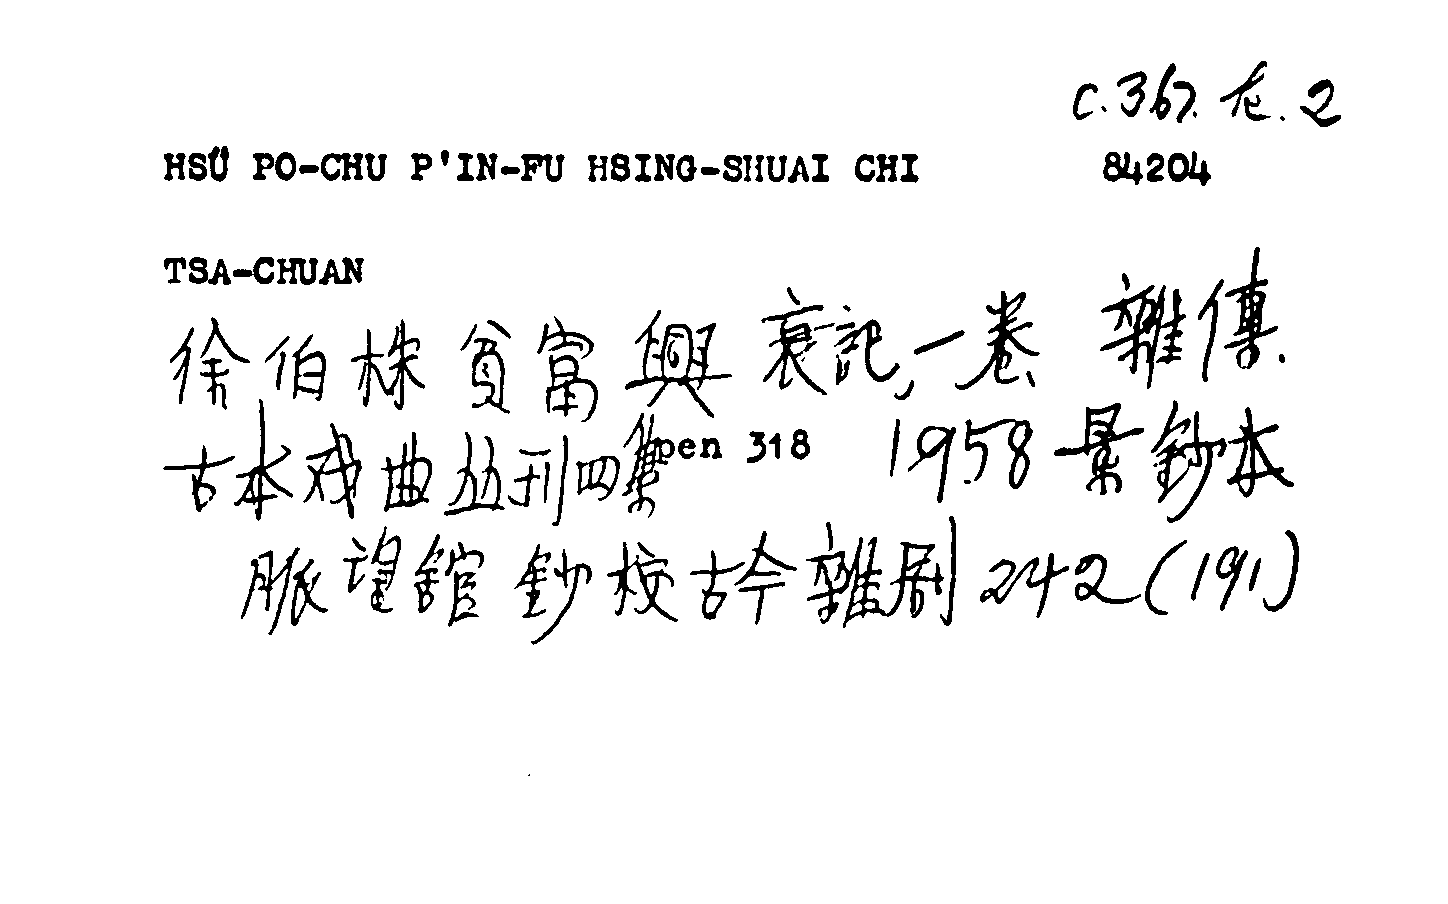 C.367.e.2
HSÜ PO-CHU P'IN-FU HSING-SHUAI CHI 84204
TSA-CHUAN
徐伯株貧富興衰記,一卷 雜傳.
古本戏曲丛刊四集 pen 318 1958 景鈔本
脈望館鈔校古今雜剧 242(191)